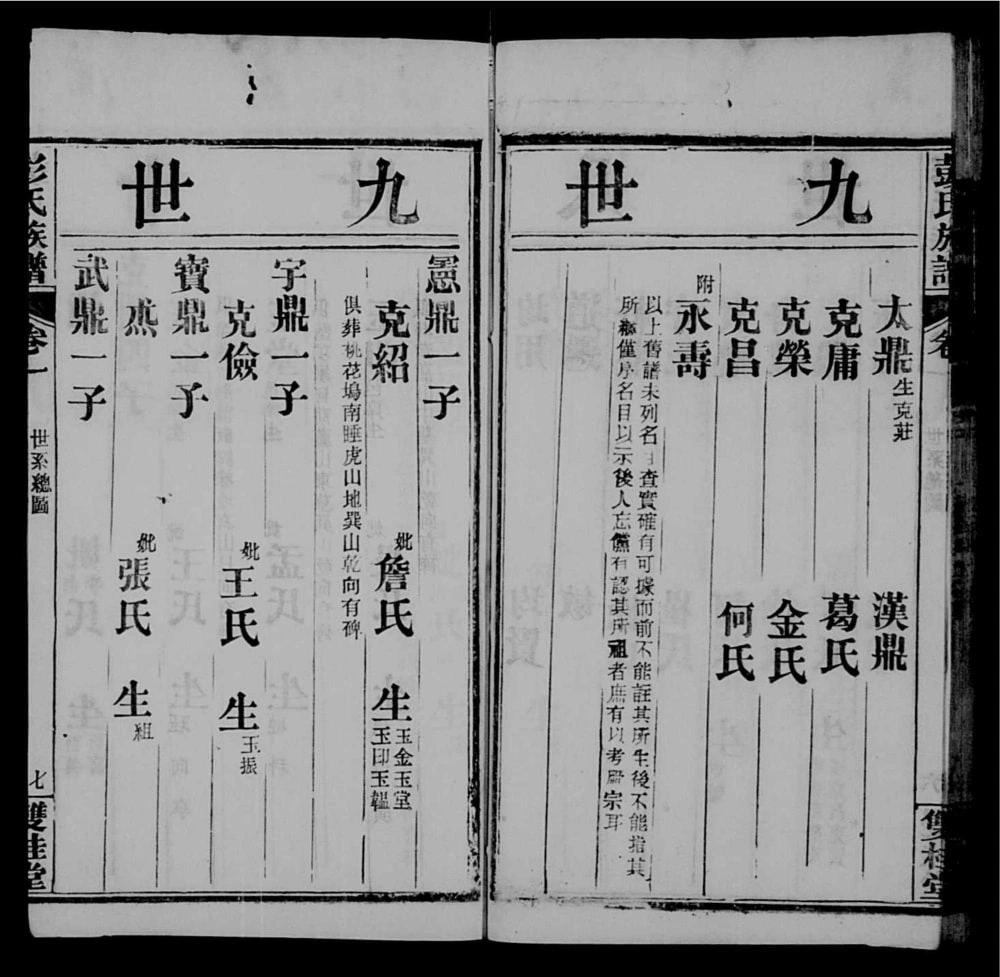 彭氏族譜
卷
雙桂堂
九世
太鼎 生克莊
漢鼎
克庸
葛氏
克榮
金氏
克昌
何氏
附
永壽
以上舊譜未列名目查實確有可據而前不能註其所生後不能指其
所繼僅序名目以示後人忘儻有認其所祖者庶有以考厥宗耳
九世
憲鼎一子
克紹
妣詹氏
生玉金玉堂
玉印玉韞
俱葬桃花塢南睡虎山地巽山乾向有碑
宇鼎一子
克儉
妣王氏
生玉振
寶鼎一子
烝
妣張氏
生祖
武鼎一子
彭氏族譜
卷一
世系總圖
七
雙桂堂